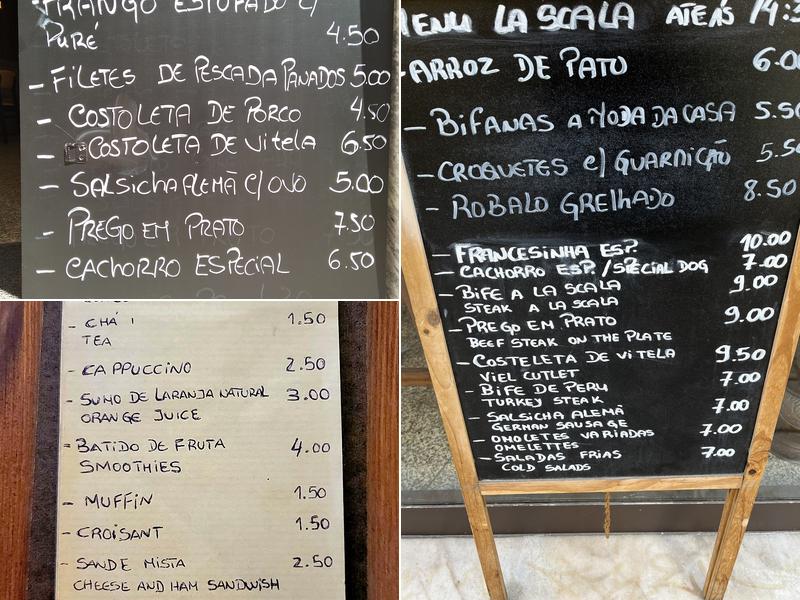 FRANGO ESTUFADO C/
PURÉ 4.50
- FILETES DE PESCADA PANADOS 5.00
- COSTOLETA DE PORCO 4.50
- COSTOLETA DE VITELA 6.50
- SALSICHA ALEMÃ C/ OVO 5.00
- PREGO EM PRATO 7.50
- CACHORRO ESPECIAL 6.50
- CHÁ 1.50
TEA
- CAPPUCCINO 2.50
- SUMO DE LARANJA NATURAL 3.00
ORANGE JUICE
- BATIDO DE FRUTA 4.00
SMOOTHIES
- MUFFIN 1.50
- CROISANT 1.50
- SANDE MISTA 2.50
CHEESE AND HAM SANDWISH
MENU LA SCALA ATE ÁS
- ARROZ DE PATO 6.00
- BIFANAS A MODA DA CASA 5.50
- CROQUETES C/ GUARNIÇÃO 5.50
- ROBALO GRELHADO 8.50
- FRANCESINHA ESP. 10.00
- CACHORRO ESP. / SPECIAL DOG 7.00
- BIFE A LA SCALA 9.00
STEAK A LA SCALA
- PREGO EM PRATO 9.00
BEEF STEAK ON THE PLATE
- COSTELETA DE VITELA 9.50
VIEL CUTLET
- BIFE DE PERU 7.00
TURKEY STEAK
- SALSICHA ALEMÃ 7.00
GERMAN SAUSAGE
- OMOLETES VARIADAS 7.00
OMELETTES
- SALADAS FRIAS 7.00
COLD SALADS